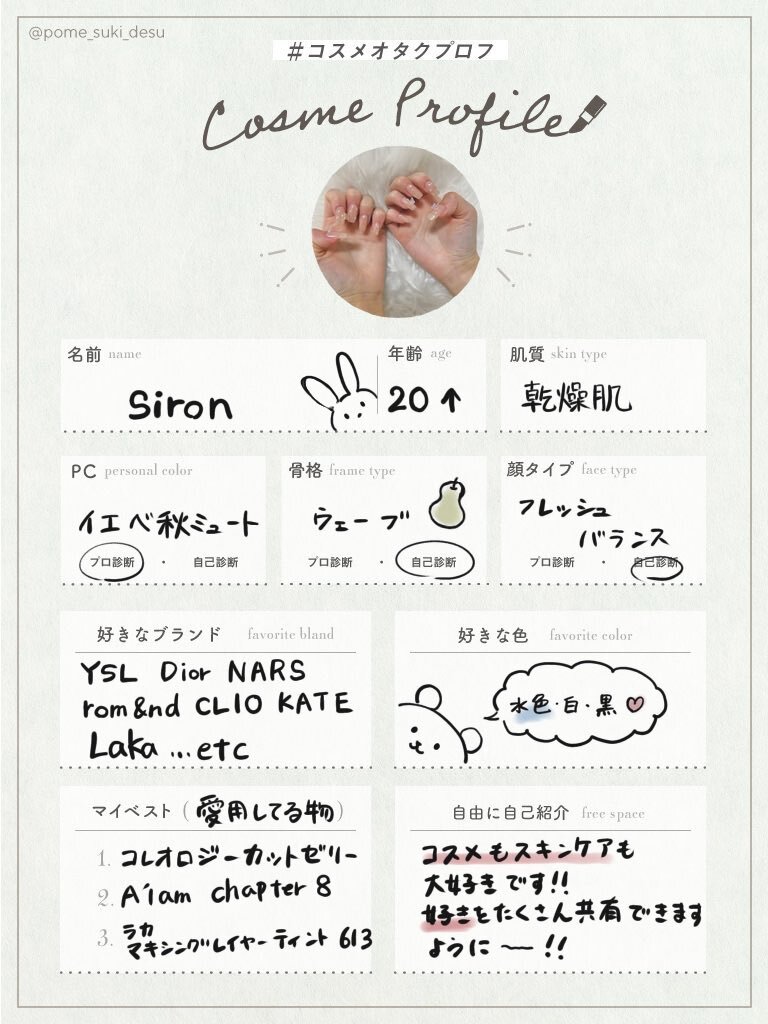 @pome_suki_desu
#コスメオタクプロフ
Cosme Profile
名前 name
siron
年齢 age
20↑
肌質 skin type
乾燥肌
PC personal color
イエベ秋ミュート
プロ診断 ・ 自己診断
骨格 frame type
ウェーブ
プロ診断 ・ 自己診断
顔タイプ face type
フレッシュ
バランス
プロ診断 ・ 自己診断
好きなブランド favorite bland
YSL Dior NARS
rom&nd CLIO KATE
Laka ...etc
好きな色 favorite color
水色・白・黒
マイベスト(愛用してる物)
1. コレオロジーカットゼリー
2. A'iam chapter 8
3. ラカ
マキシングレイヤーティント 613
自由に自己紹介 free space
コスメもスキンケアも
大好きです!!
好きをたくさん共有できます
ように〜!!